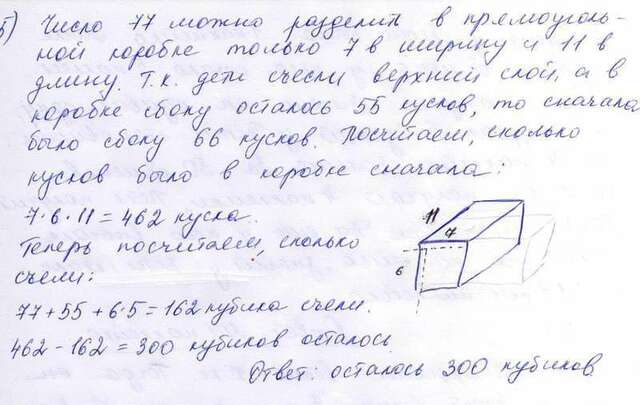 5) Число 77 можно разделить в прямоуголь-
ной коробке только 7 в ширину и 11 в
длину. Т.к. дети съели верхний слой, а в
коробке сбоку осталось 55 кусков, то сначала
было сбоку 66 кусков. Посчитаем, сколько
кусков было в коробке сначала:
7·6·11 = 462 куска.
Теперь посчитаем, сколько
съели:
11
7
6
77+55+6·5=162 кубика съели.
462-162 = 300 кубиков осталось.
Ответ: осталось 300 кубиков.